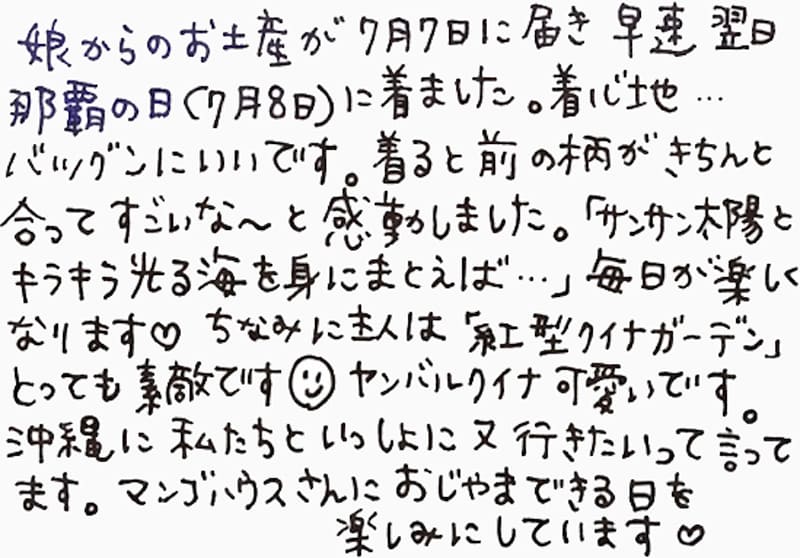 娘からのお土産が7月7日に届き 早速 翌日
那覇の日(7月8日)に着ました。着心地…
バツグンにいいです。着ると前の柄がきちんと
合ってすごいな〜と感動しました。「サンサン太陽と
キラキラ光る海を身にまとえば…」毎日が楽しく
なります♡ ちなみに主人は「紅型クイナガーデン」
とっても素敵です☺ ヤンバルクイナ可愛いです。
沖縄に私たちといっしょに又行きたいって言って
ます。マンゴハウスさんにおじゃまできる日を
楽しみにしています♡